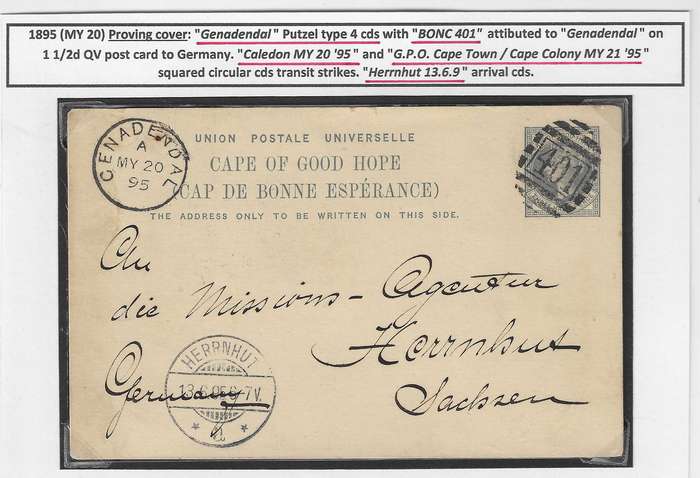 1895 (MY 20) Proving cover: "Genadendal" Putzel type 4 cds with "BONC 401" attibuted to "Genadendal" on
1 1/2d QV post card to Germany. "Caledon MY 20 '95" and "G.P.O. Cape Town / Cape Colony MY 21 '95"
squared circular cds transit strikes. "Herrnhut 13.6.9" arrival cds.
GENADENDAL
A
MY 20
95
UNION POSTALE UNIVERSELLE
CAPE OF GOOD HOPE
(CAP DE BONNE ESPÉRANCE)
THE ADDRESS ONLY TO BE WRITTEN ON THIS SIDE.
401
An
die Missions-Agentur
Herrnhut
Sachsen
Germany
HERRNHUT
13.6.95 6-7V.